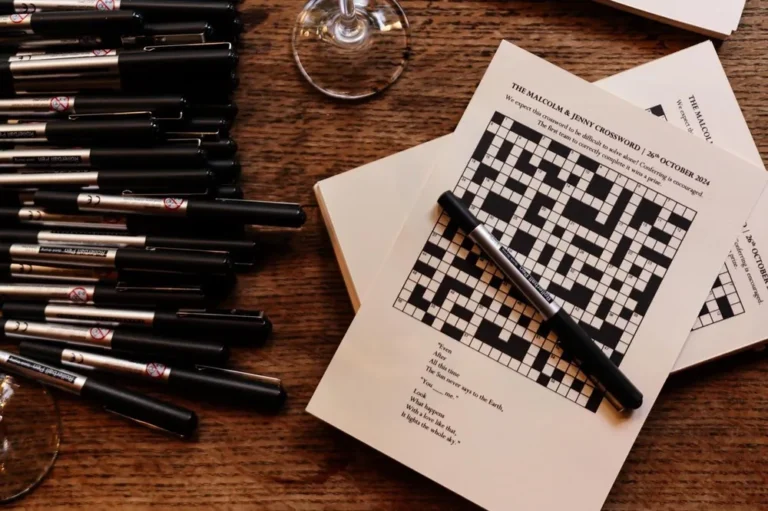 THE MALCOLM & JENNY CROSSWORD | 26th OCTOBER 2024
We expect this crossword to be difficult to solve alone! Conferring is encouraged.
The first team to correctly complete it wins a prize.
"Even
After
All this time
The Sun never says to the Earth,
"You ___ me."
Look
What happens
With a love like that,
It lights the whole sky."
THE MALCOL
We expect th
26th OCTOBER 2024
Conferring is encouraged.
a prize.